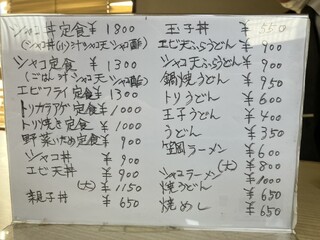 シャコ丼定食 ¥ 1800
(シャコ丼(小)汁シャコ天シャコ酢)
シャコ定食 ¥ 1300
(ごはん汁シャコ天シャコ酢)
エビフライ定食 ¥ 1300
トリカラアゲ定食 ¥ 1000
トリ焼き定食 ¥ 1000
野菜いため定食 ¥ 900
シャコ丼 ¥ 900
エビ天丼 ¥ 900
(大) ¥ 1150
親子丼 ¥ 650
玉子丼 ¥ 550
エビ天ぷらうどん ¥ 900
シャコ天ぷらうどん ¥ 900
鍋焼うどん ¥ 950
トリうどん ¥ 600
玉子うどん ¥ 400
うどん ¥ 350
ラーメン ¥ 600
(大) ¥ 800
シャコラーメン ¥ 1000
焼うどん ¥ 650
焼めし ¥ 650